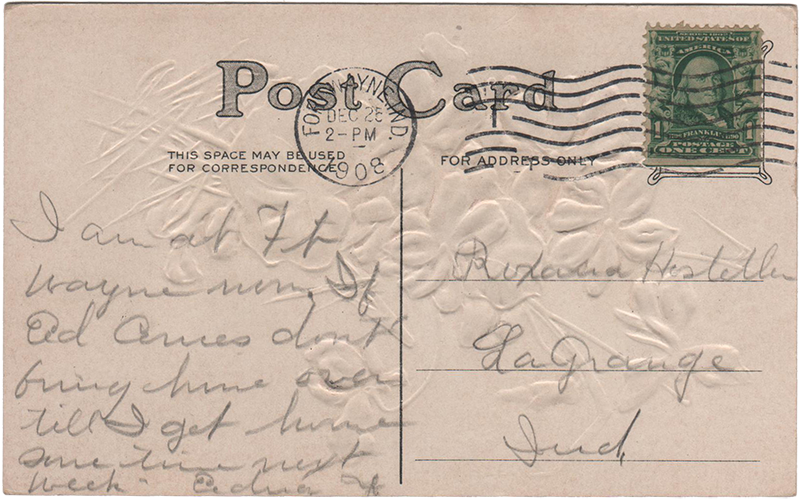 Post Card
THIS SPACE MAY BE USED
FOR CORRESPONDENCE
FOR ADDRESS ONLY
FORT WAYNE, IND.
DEC 28
2-PM
1908
SERIES 1902
UNITED STATES OF
AMERICA
FRANKLIN
POSTAGE
ONE CENT
I am at Ft
Wayne now. If
Ed dont
bring home
till I get home
some time next
Week
Hostetler
LaGrange
Ind,